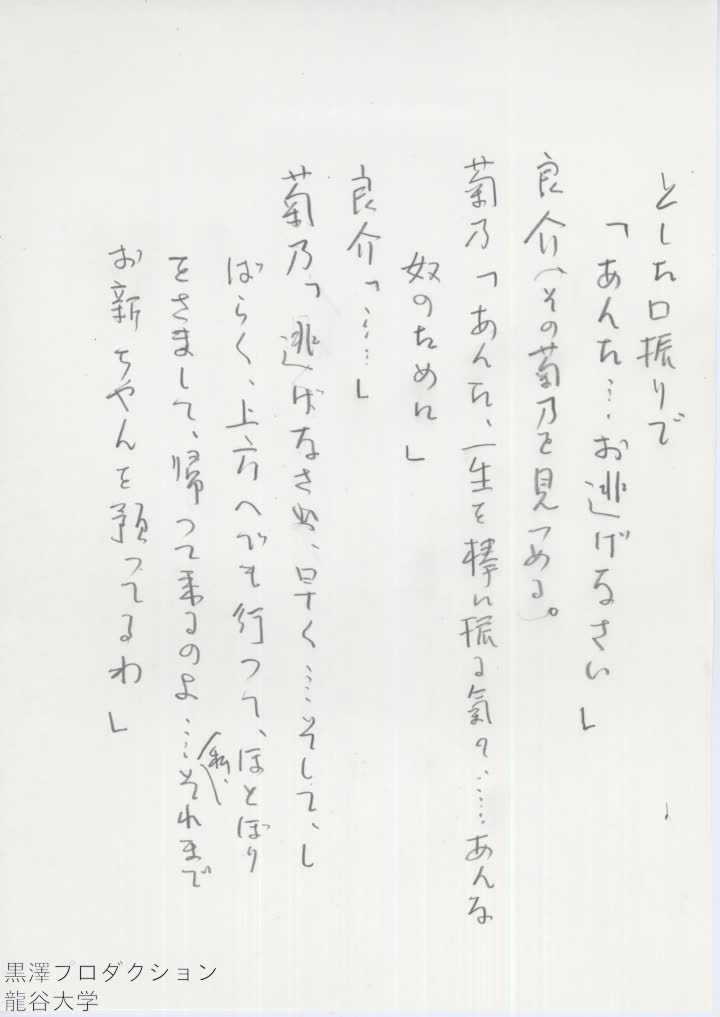 とした口振りで
「あんた…お逃げなさい」
良介、その菊乃を見つめる。
菊乃「あんた、一生を棒に振る氣？……あんな
奴のために」
良介「……」
菊乃「逃げなさい、早く……そして、し
ばらく、上方へでも行つて、ほとぼり
をさまして、帰つて来るのよ……私、それまで
お新ちやんを預つてるわ」
黒澤プロダクション
龍谷大学